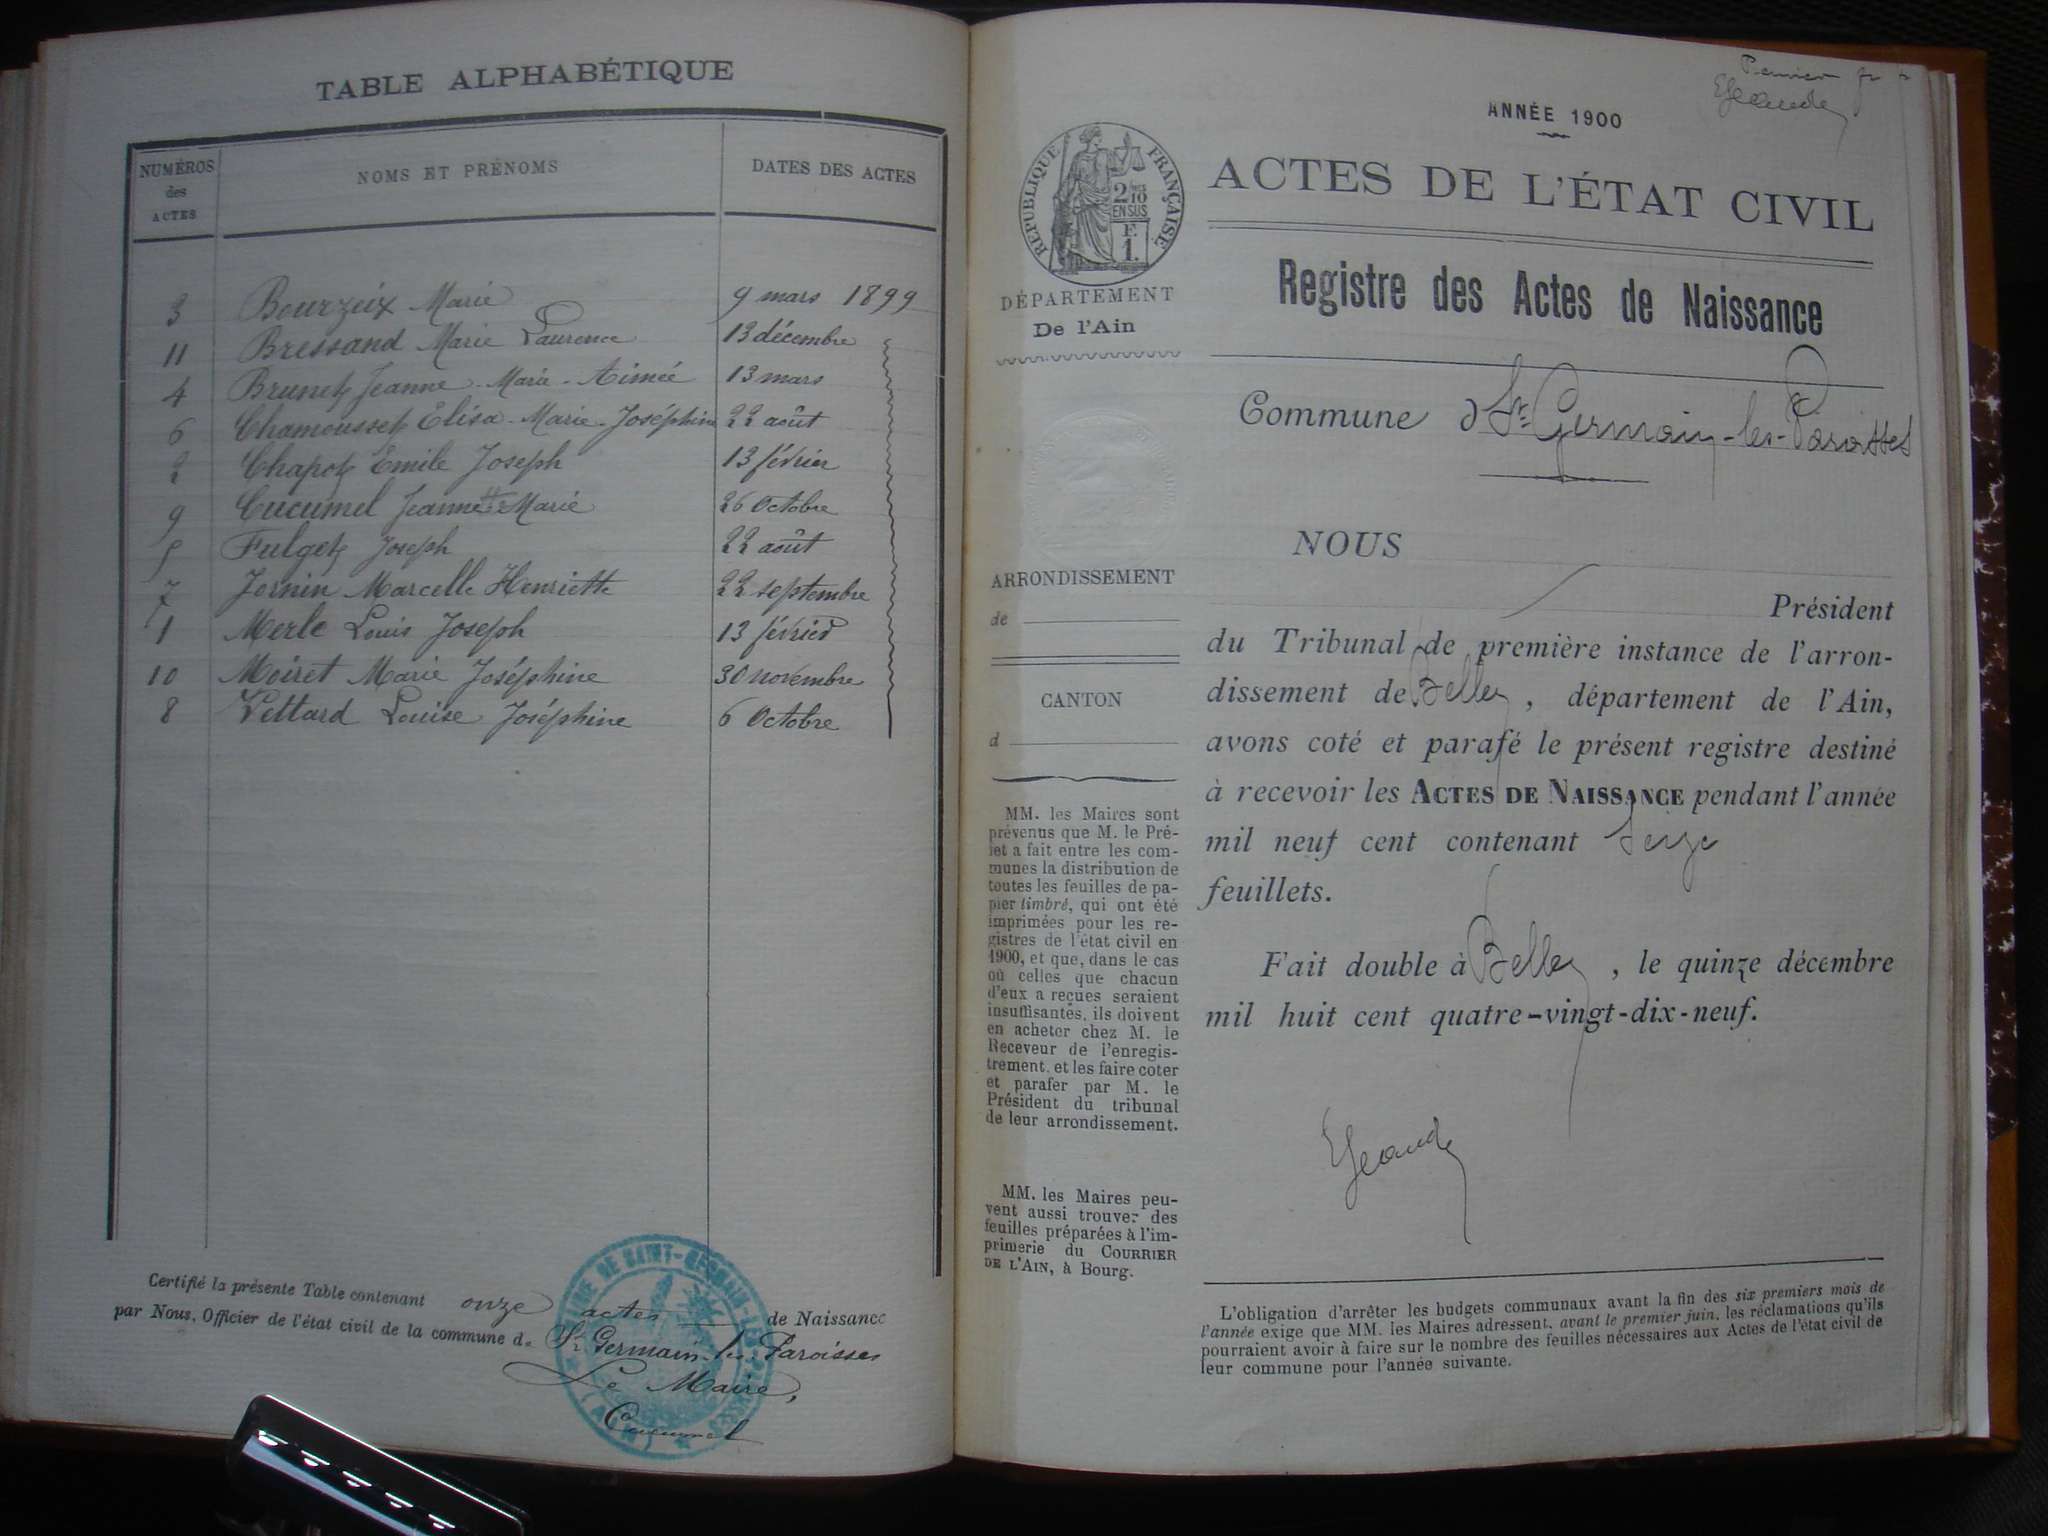 TABLE ALPHABÉTIQUE
NUMÉROS des ACTES NOMS ET PRÉNOMS DATES DES ACTES
3 Bourzeix Marie 9 mars 1899
11 Bressand Marie Laurence 13 décembre
4 Brunet Jeanne-Marie-Aimée 13 mars
6 Chamousset Elisa-Marie-Joséphine 22 août
2 Chapot Emile Joseph 13 février
9 Cucumel Jeanne Marie 26 Octobre
5 Fulget Joseph 22 août
7 Jornin Marcelle Henriette 22 septembre
1 Merle Louis Joseph 13 février
10 Moiret Marie Joséphine 30 novembre
8 Vettard Louise Joséphine 6 Octobre
Certifié la présente Table contenant onze actes de Naissance
par Nous, Officier de l'état civil de la commune d. St Germain-les-Paroisses
Le Maire,
Cucumel
MAIRIE DE SAINT-GERMAIN-LES-PAROISSES
(AIN)
Premier
ANNÉE 1900
RÉPUBLIQUE FRANÇAISE
2/10 EN SUS
F. 1.
ACTES DE L'ÉTAT CIVIL
Registre des Actes de Naissance
DÉPARTEMENT
De l'Ain
Commune d St. Germain-les-Paroisses
NOUS
ARRONDISSEMENT
de
CANTON
d
Président
du Tribunal de première instance de l'arron-
dissement de Belley, département de l'Ain,
avons coté et parafé le présent registre destiné
à recevoir les ACTES DE NAISSANCE pendant l'année
mil neuf cent contenant Seize
feuillets.
Fait double à Belley, le quinze décembre
mil huit cent quatre-vingt-dix-neuf.
MM. les Maires sont
prévenus que M. le Pré-
fet a fait entre les com-
munes la distribution de
toutes les feuilles de pa-
pier timbré, qui ont été
imprimées pour les re-
gistres de l'état civil en
1900, et que, dans le cas
où celles que chacun
d'eux a reçues seraient
insuffisantes, ils doivent
en acheter chez M. le
Receveur de l'enregis-
trement, et les faire coter
et parafer par M. le
Président du tribunal
de leur arrondissement.
MM. les Maires peu-
vent aussi trouver des
feuilles préparées à l'im-
primerie du COURRIER
DE L'AIN, à Bourg.
L'obligation d'arrêter les budgets communaux avant la fin des six premiers mois de
l'année exige que MM. les Maires adressent, avant le premier juin, les réclamations qu'ils
pourraient avoir à faire sur le nombre des feuilles nécessaires aux Actes de l'état civil de
leur commune pour l'année suivante.